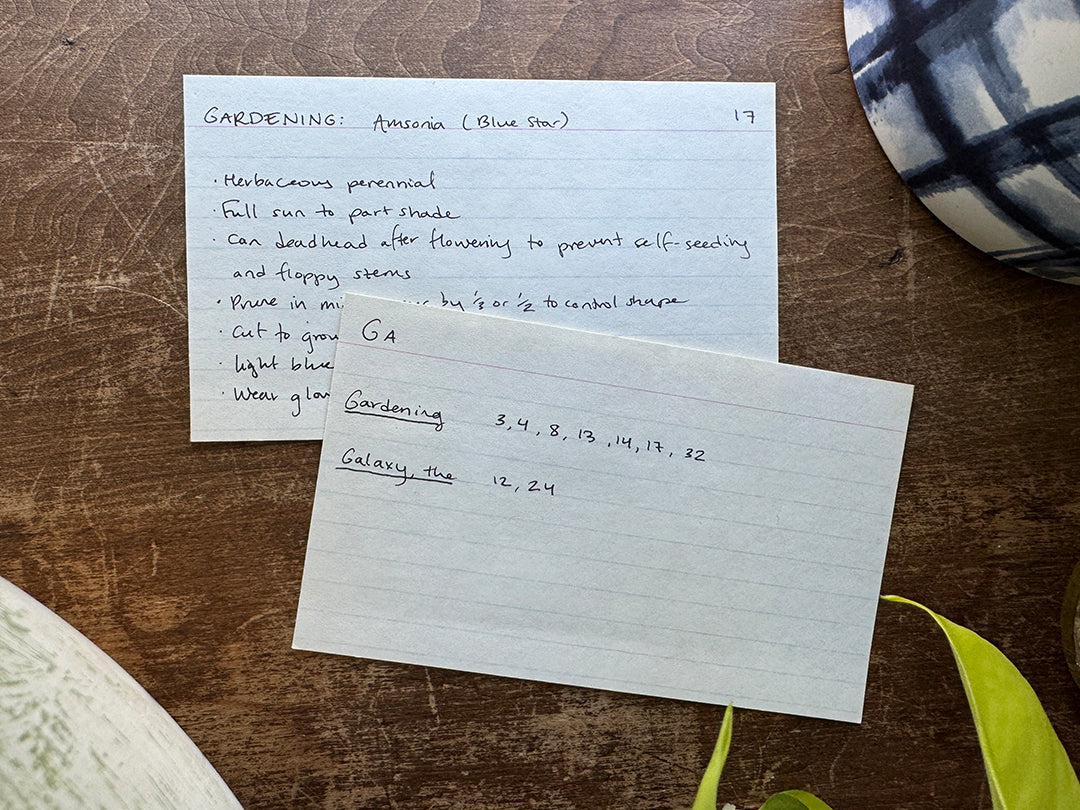 GARDENING: Amsonia (Blue Star) 17
· Herbaceous perennial
· Full sun to part shade
· Can deadhead after flowering to prevent self-seeding
and floppy stems
· Prune in by 1/3 or 1/2 to control shape
· Cut to
· light blue
· Wear
GA
Gardening 3, 4, 8, 13, 14, 17, 32
Galaxy, the 12, 24